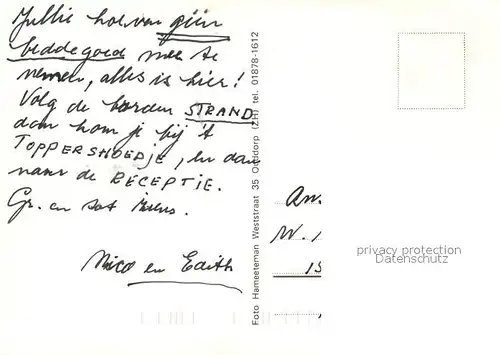 Jullie hoeven géén
beddegoed mee te
nemen, alles is hier!
Volg de borden STRAND,
dan kom je bij 't
TOPPERSHOEDJE, en dan
naar de RECEPTIE.
Gr. en tot ziens.
Nico en Edith
Foto Hameeteman Weststraat 35 Ouddorp (ZH) tel. 01878-1612
An.
W.
privacy protection
Datenschutz